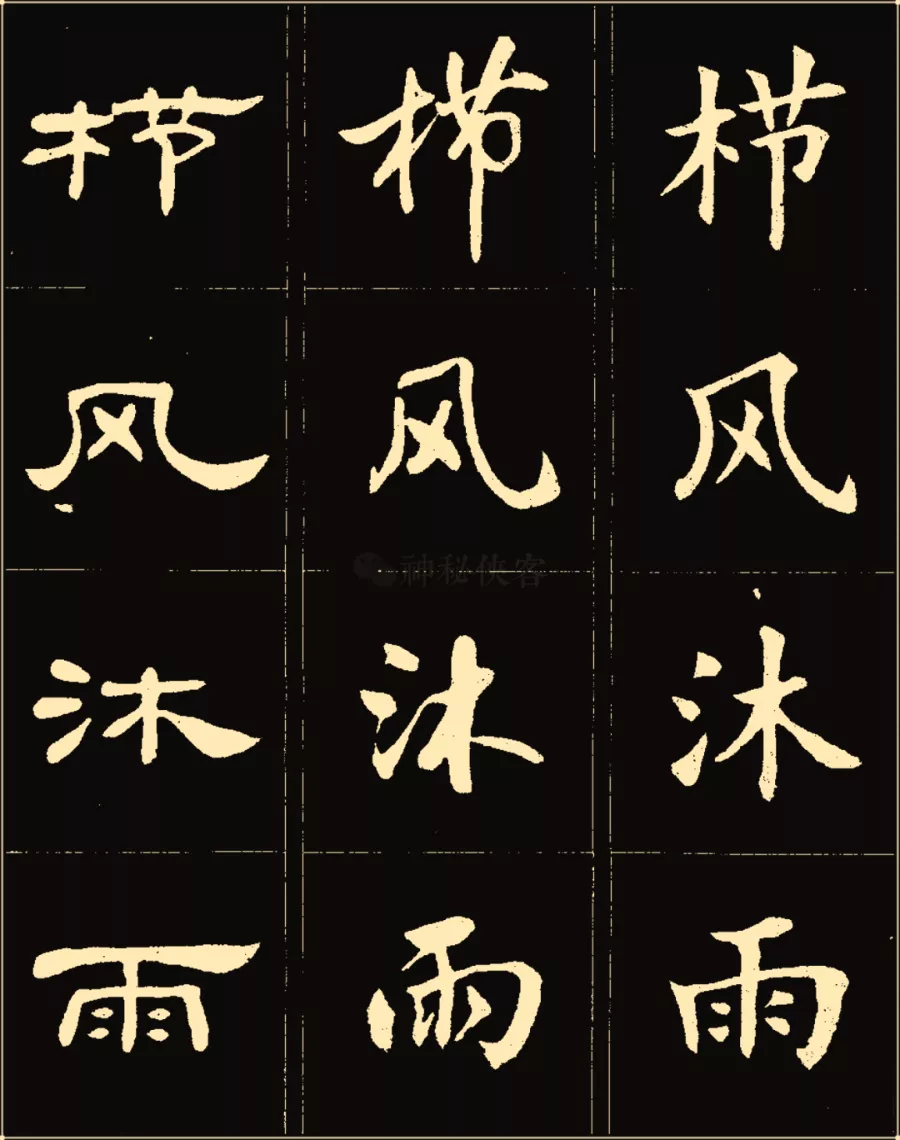 栉 栉 栉
风 风 风
神秘侠客
沐 沐 沐
雨 雨 雨